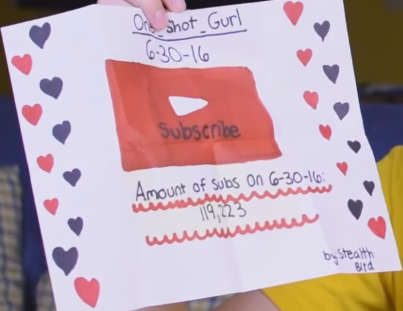 One_Shot_Gurl
6-30-16
Subscribe
Amount of subs on 6-30-16:
119,223
by:stealth
Bird